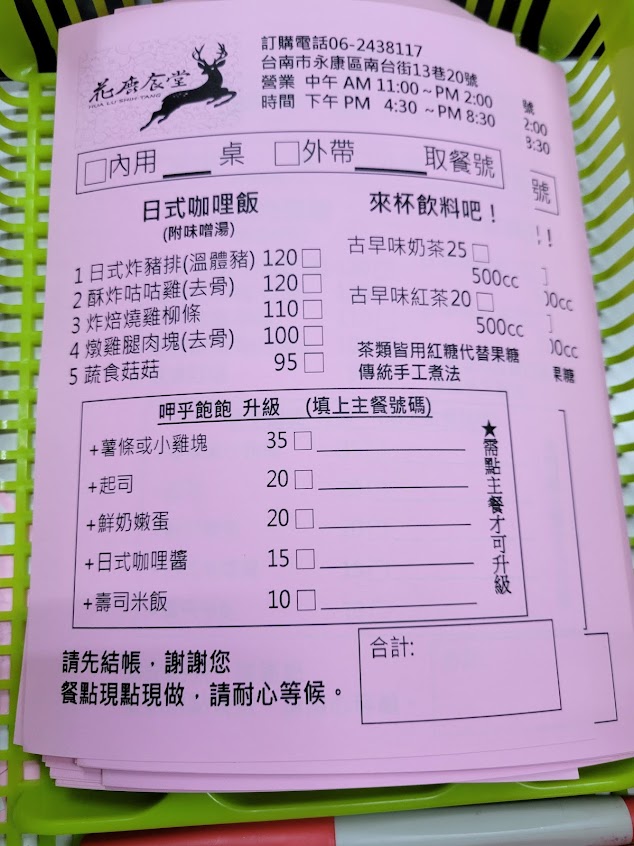 花鹿食堂
HUA LU SHIH TANG
訂購電話06-2438117
台南市永康區南台街13巷20號
營業 中午 AM 11:00～PM 2:00
時間 下午 PM 4:30 ～PM 8:30
□內用___桌 □外帶_____取餐號
日式咖哩飯
(附味噌湯)
1 日式炸豬排(溫體豬) 120 □
2 酥炸咕咕雞(去骨) 120 □
3 炸焙燒雞柳條 110 □
4 燉雞腿肉塊(去骨) 100 □
5 蔬食菇菇 95 □
來杯飲料吧！
古早味奶茶25 □
500cc
古早味紅茶20 □
500cc
茶類皆用紅糖代替果糖
傳統手工煮法
呷乎飽飽 升級 (填上主餐號碼)
+薯條或小雞塊 35 □
+起司 20 □
+鮮奶嫩蛋 20 □
+日式咖哩醬 15 □
+壽司米飯 10 □
★需點主餐才可升級
請先結帳，謝謝您
餐點現點現做，請耐心等候。
合計:
號
2:00
8:30
號
!
00cc
00cc
果糖